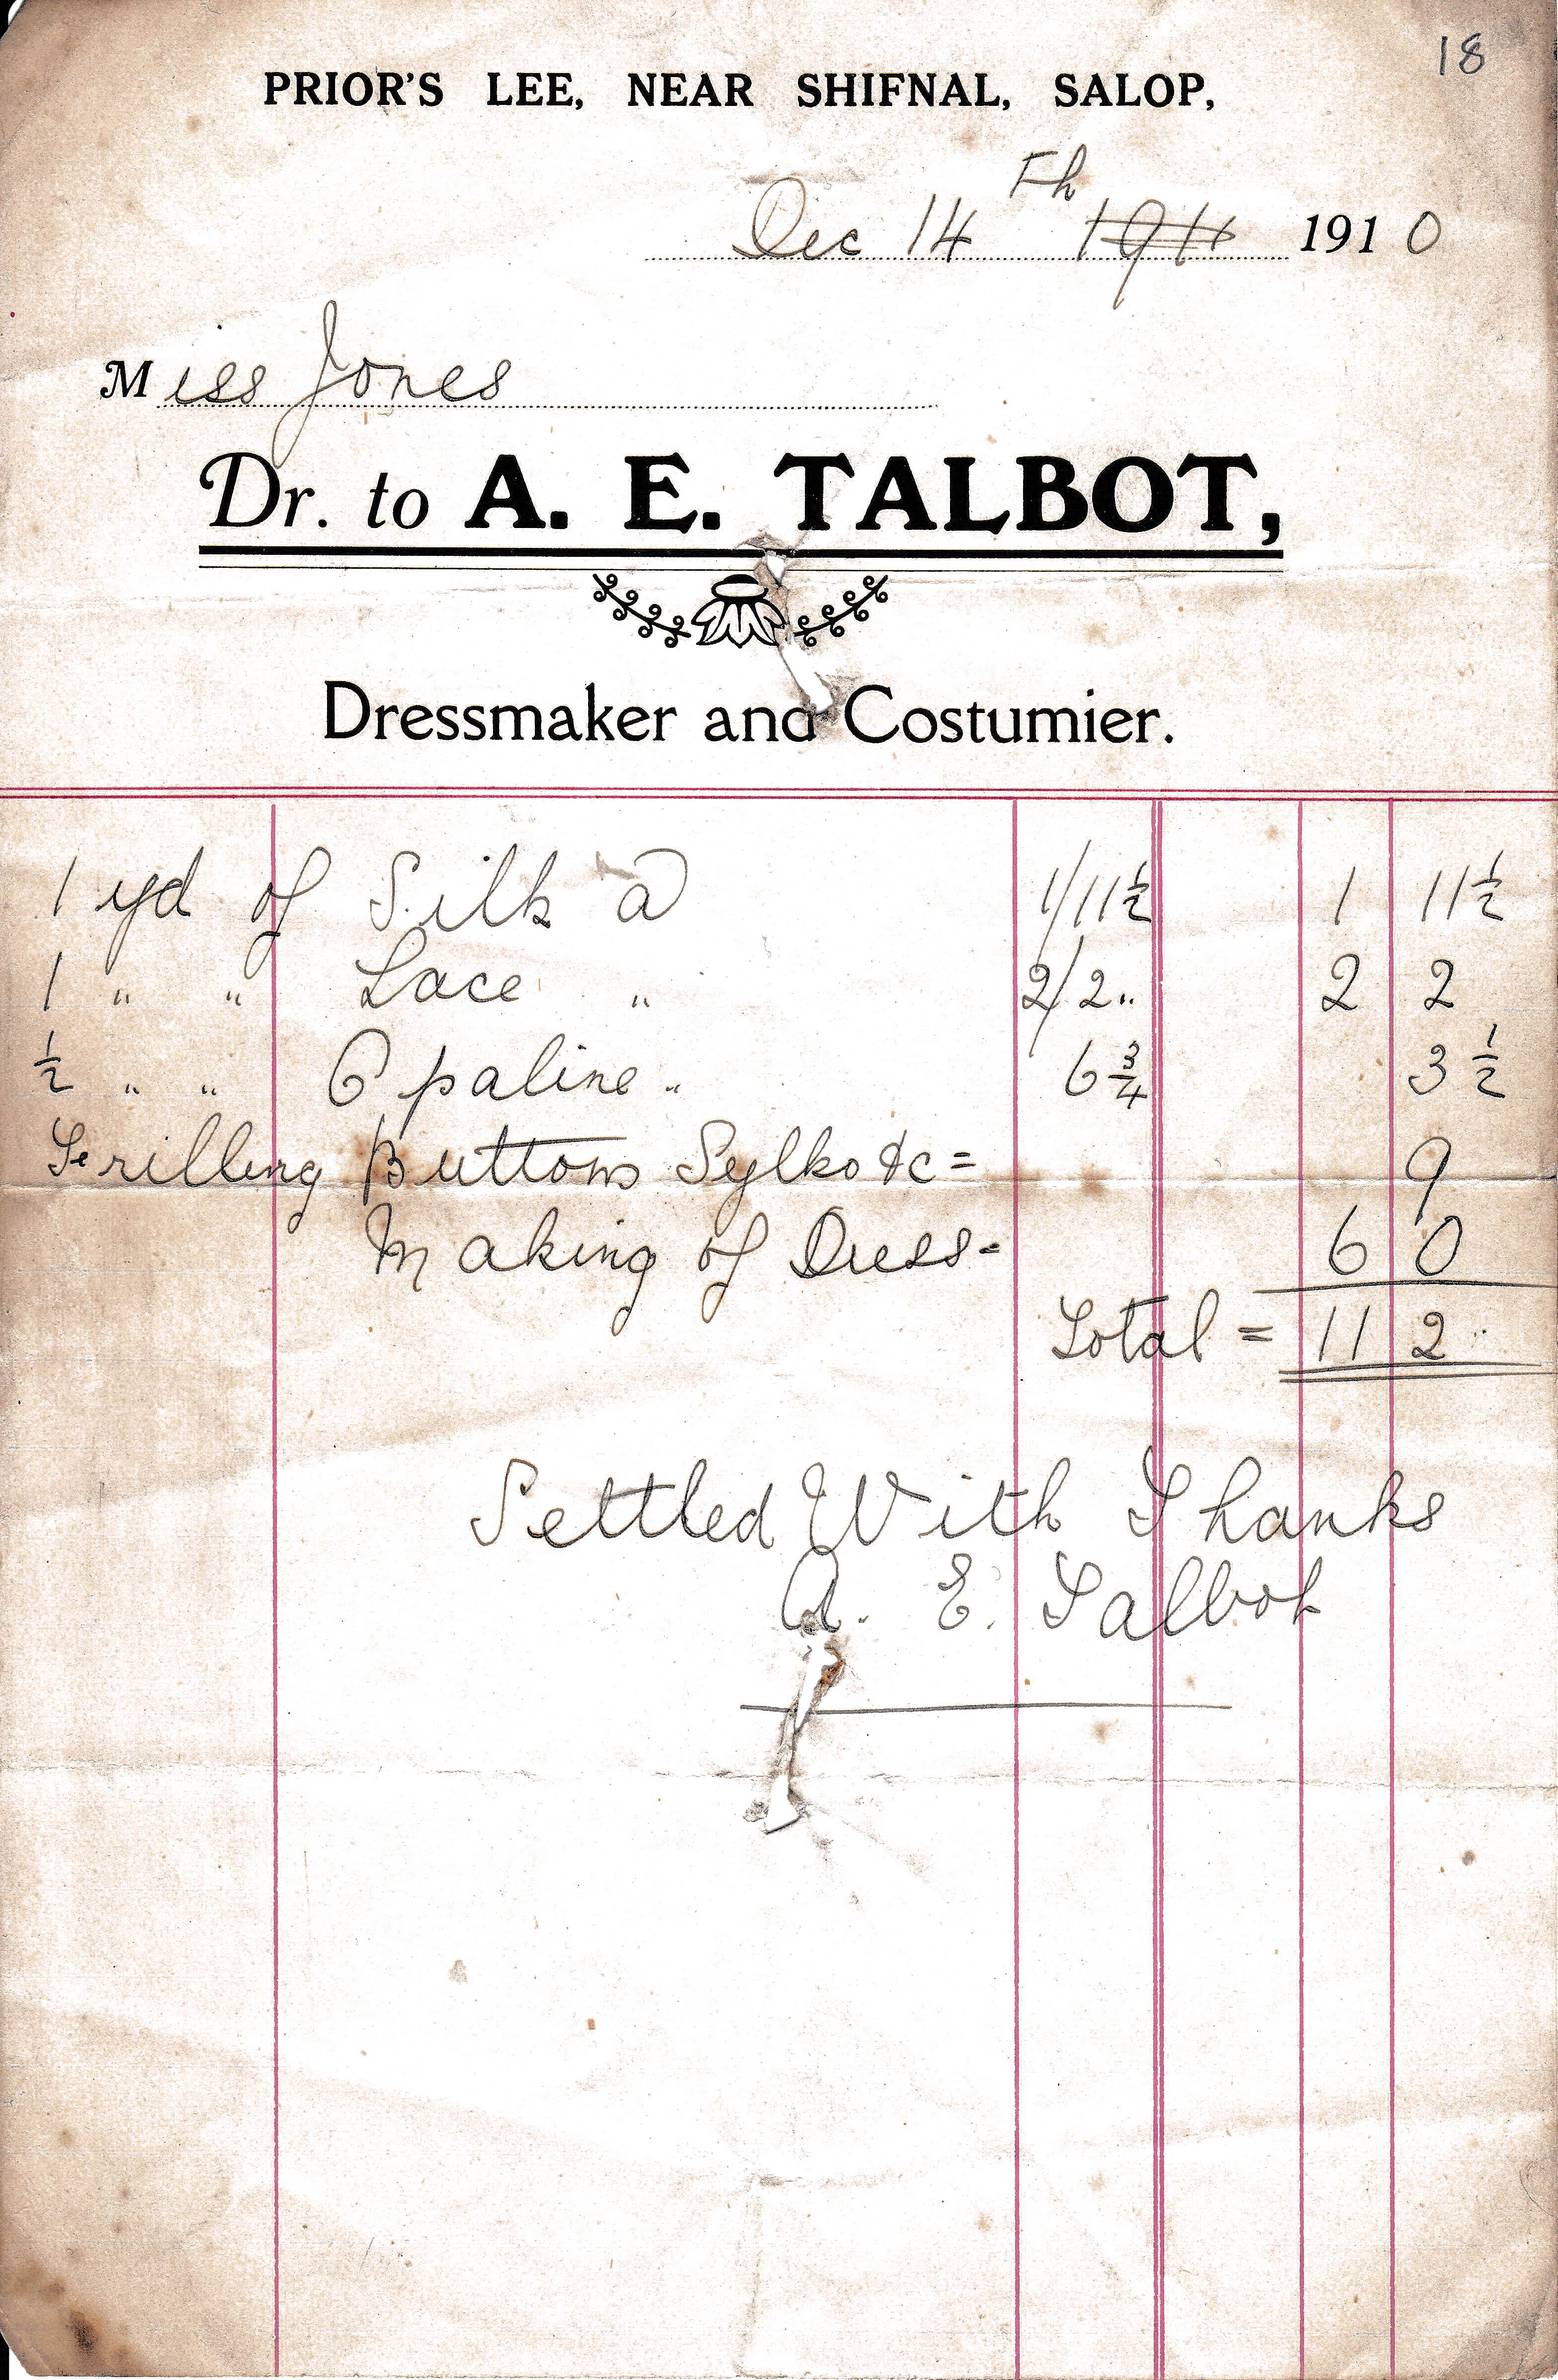 18
PRIOR'S LEE, NEAR SHIFNAL, SALOP,
Dec 14th 1911 1910
Miss Jones
Dr. to A. E. TALBOT,
Dressmaker and Costumier.
1 yd of Silk @ 1/11½ 1 11½
1 " " Lace " 2/2 " 2 2
½ " " Opaline " 6¾ 3½
Buttons Sylko &c = 9
Making of Dress - 6 0
Total = 11 2 "
Settled With Thanks
A. E. Talbot